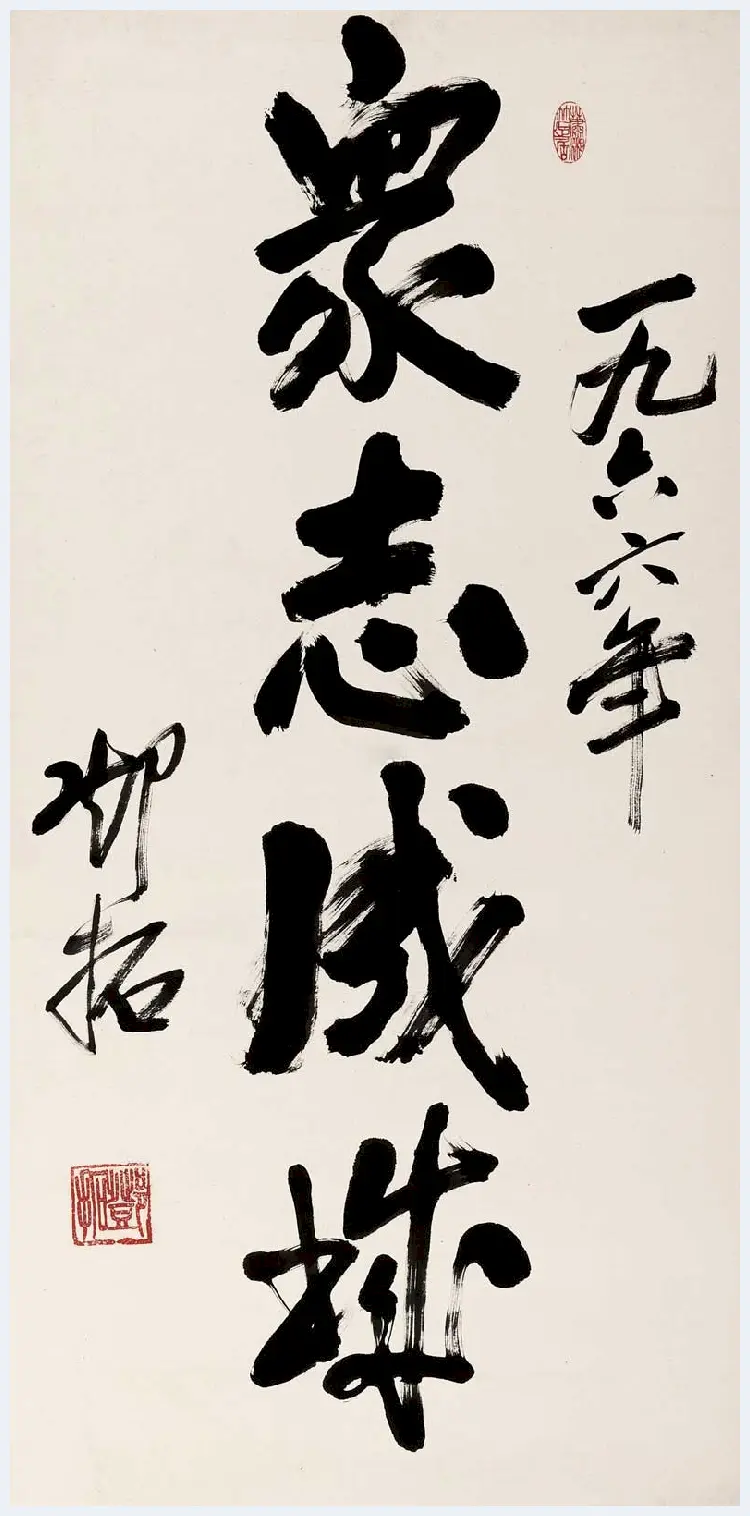 一九六六年
衆志成城
邓拓
鄧拓